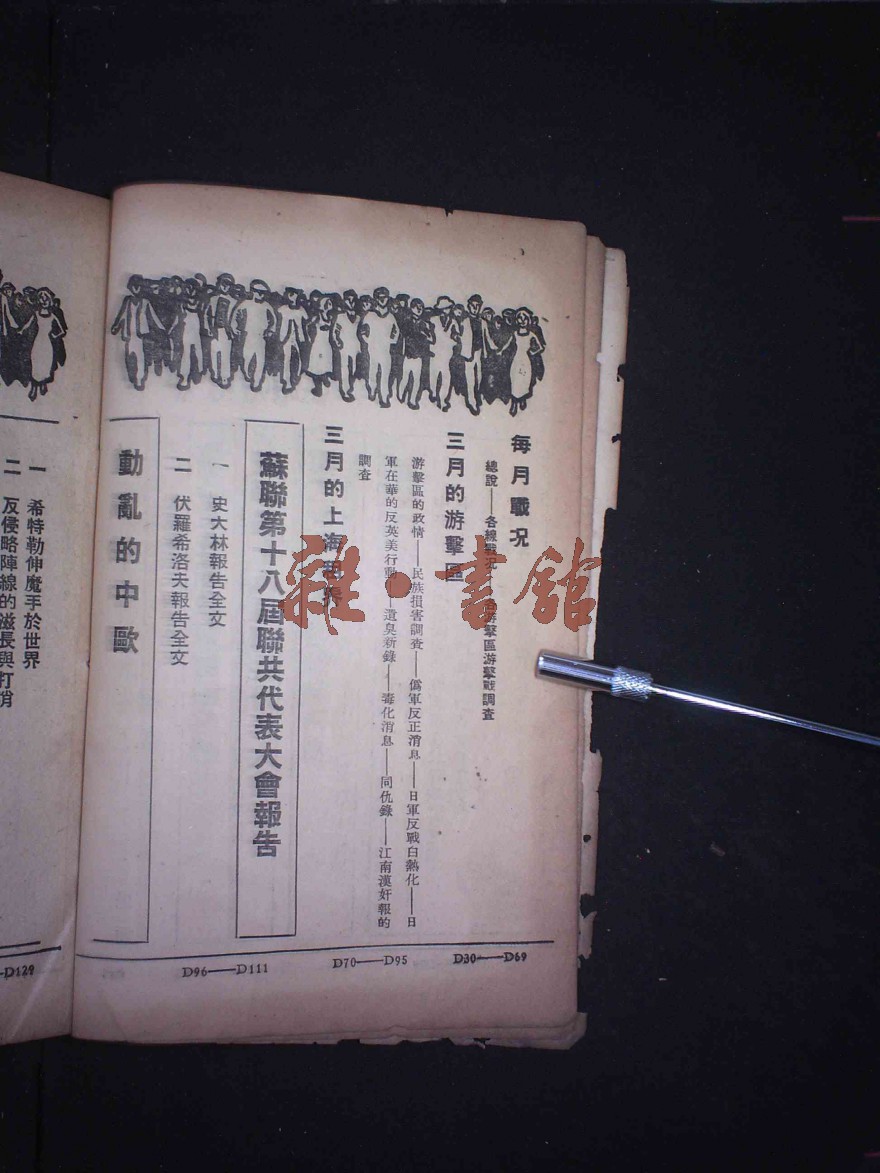 每月戰况
總說——各線戰况——各游擊區游擊戰調查
三月的游擊區
游擊區的政情——民族損害調查——僞軍反正消息——日軍反戰白熱化——日
軍在華的反英美行動——遺臭新錄——毒化消息——同仇錄——江南漢奸報的
調查
三月的上海租界
蘇聯第十八屆聯共代表大會報告
一 史大林報告全文
二 伏羅希洛夫報告全文
動亂的中歐
D30——D69
D70——D95
D96——D111
一 希特勒伸魔手於世界
二 反侵略陣線的滋長與打
—D129
雜·書館